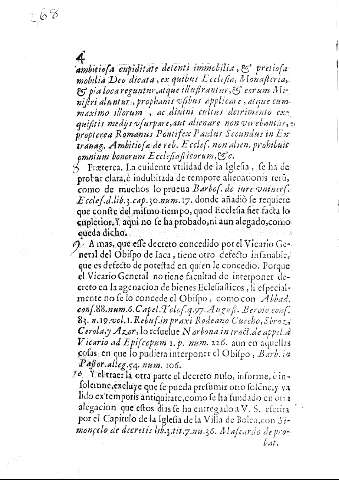 268
4
ambitiosa cupiditate detenti immobilia, & pretiosa
mobilia Deo dicata, ex quibus Ecclesiæ, Monasteria,
& pia loca reguntur, atque illustrantur, & eorum Mi-
nistri aluntur, prophanis usibus applicare, atque cum
maximo illorum, ac divini cultus detrimento ex-
quisitis medijs usurpare, aut alienare non verebantur, &
propterea Romanus Pontifex Paulus Secundus in Ex-
travag. Ambitiosæ de reb. Eccles. non alien. prohibuit
omnium bonorum Ecclesiasticorum, &c.
Præterea. La euidente vtilidad de la Iglesia, se ha de
probar clara, è indubitada de tempore alienationis rerũ,
como de muchos lo prueua Barbos. de iure vniuers.
Eccles. d. lib. 3. cap. 30. num. 17. donde añadiò se requiere
que conste del mismo tiempo, quod Ecclesia fiet facta lo
cupletior. Y aqui no se ha probado, ni aun alegado, como
queda dicho.
9 A mas, que esse decreto concedido por el Vicario Ge-
neral del Obispo de Iaca, tiene otro defecto insanable,
que es defecto de potestad en quien le concedio. Porque
el Vicario General no tiene facultad de interponer de-
creto en la agenacion de bienes Eclesiasticos, si especial-
mente no se lo concede el Obispo, como con Abbad.
cons. 88. num. 6. Capel. Tolos. q. 97. August. Beroio cons.
83. n. 19. vol. 1. Rebuf. in praxi Bodeano Cuccho, Sbroz.
Cerola, y Azor, lo resuelue Narbona in tract. de appel. à
Vicario ad Episcopum 1. p. num. 226. aun en aquellas
cosas en que lo pudiera interponer el Obispo, Barb. in
Pastor. alleg. 94. num. 106.
10 Y el traer la otra parte el decreto nulo, informe, è in-
solemne, excluye que se pueda presumir otro solẽne, y va
lido ex temporis antiquitate, como se ha fundado en otra
alegacion que estos dias se ha entregado a V. S. escrita
por el Capitulo de la Iglesia de la Villa de Bolea, con Si-
monçelo de decretis lib. 3. tit. 7. nu. 36. Mascardo de pro-
bat.